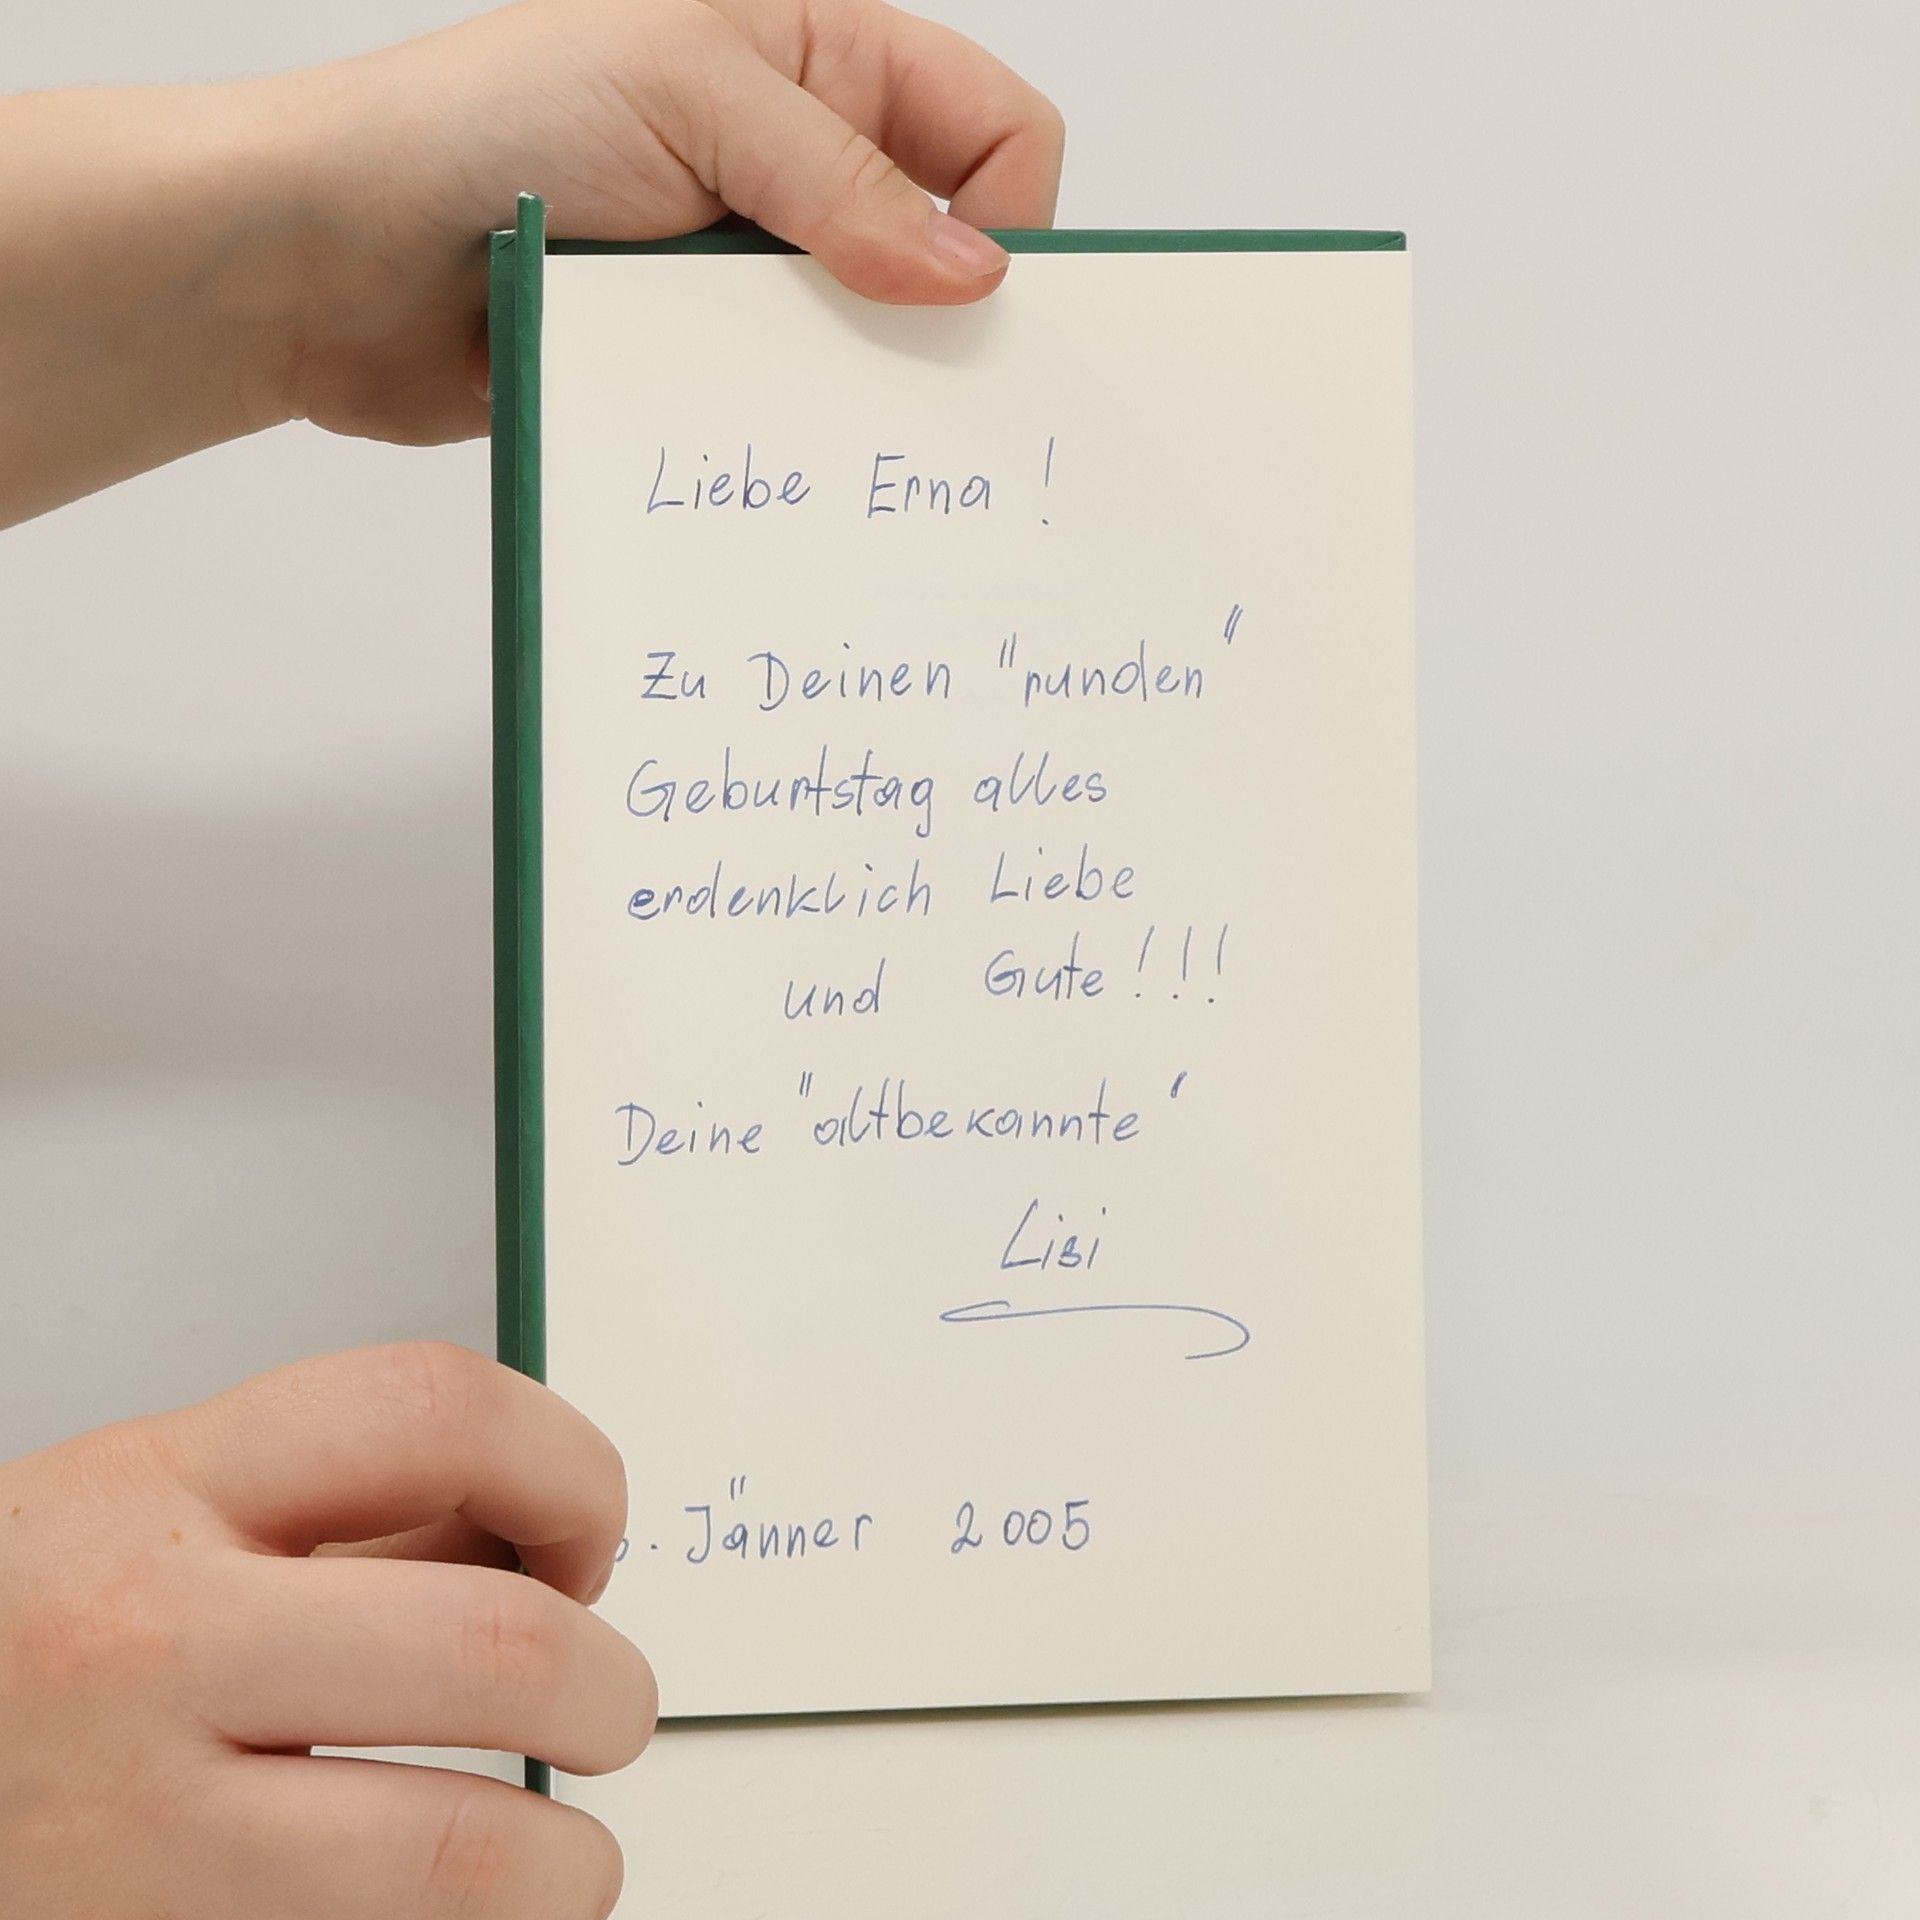 Liebe Erna !
Zu Deinen "runden"
Geburtstag alles
erdenklich Liebe
und Gute !!!
Deine "altbekannte"
Lisi
. Jänner 2005